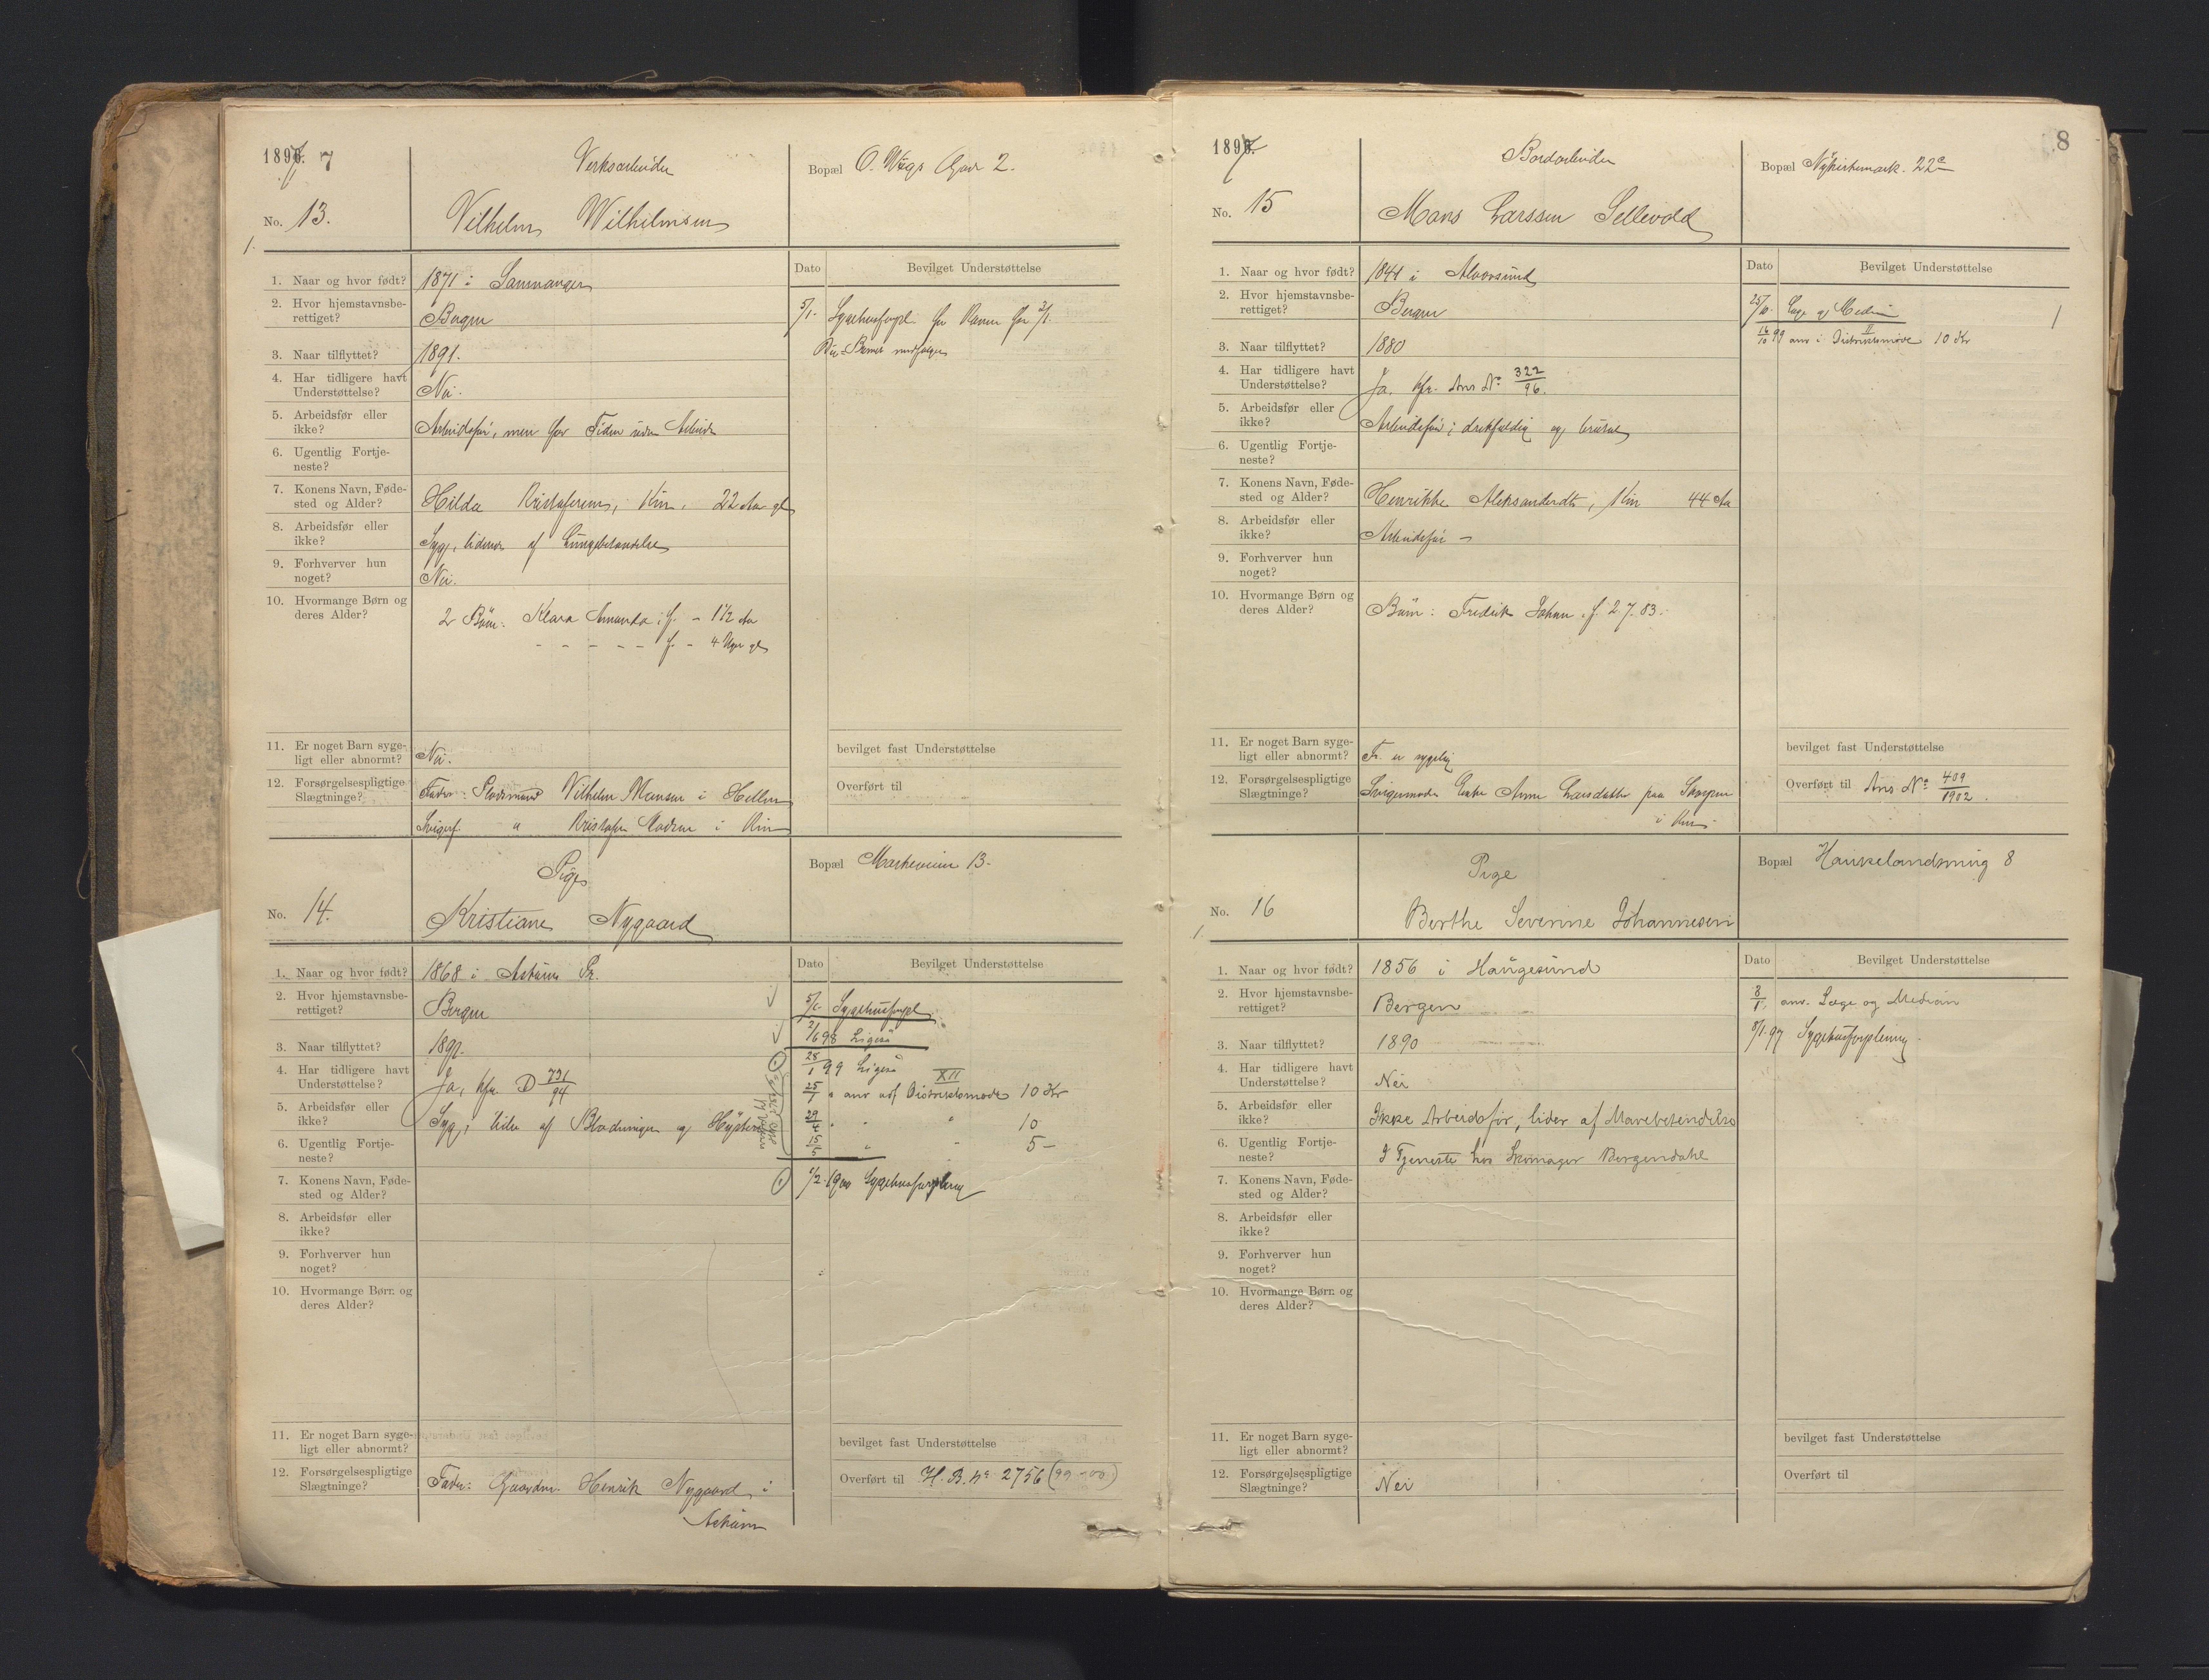 1897. 7
Verksarbeider
Bopæl O. Wægs Gaar 2.
No. 13.
Vilhelm Wilhelmsen
1.
Dato Bevilget Understøttelse
1. Naar og hvor født? 1871 i Samnanger
2. Hvor hjemstavnsbe-
rettiget? Bergen
3. Naar tilflyttet? 1891.
4. Har tidligere havt
Understøttelse? Nei.
5. Arbeidsfør eller
ikke? Arbeidsfør, men for Tiden uden Arbeide
6. Ugentlig Fortje-
neste?
7. Konens Navn, Føde-
sted og Alder? Hilda Kristofersen, Kin, 22 Aar gl
8. Arbeidsfør eller
ikke? Syg, lider af Lungebetændelse
9. Forhverver hun
noget? Nei.
10. Hvormange Børn og
deres Alder? 2 Børn: Klara Amanda f. - 1 1/2 Aar
- - - - - f. - 4 Uger gl
5/1. Sygehusforpl. for Konen fra 3/1.
Die-Barnet medfølger
11. Er noget Barn syge-
ligt eller abnormt? Nei.
12. Forsørgelsespligtige
Slægtninge? Fader: Vilhelm Monsen i Hellen
Svigerf. " Kristofer i Kin
bevilget fast Understøttelse
Overført til
Pige
Bopæl Markeveien 13.
No. 14.
Kristiane Nygaard
Dato Bevilget Understøttelse
1. Naar og hvor født? 1868 i Askøens Pr.
2. Hvor hjemstavnsbe-
rettiget? Bergen
3. Naar tilflyttet?
4. Har tidligere havt
Understøttelse? Ja, kfr. D 731/94
5. Arbeidsfør eller
ikke? Syg; lider af Blødninger og Hysteri
6. Ugentlig Fortje-
neste?
7. Konens Navn, Føde-
sted og Alder?
8. Arbeidsfør eller
ikke?
9. Forhverver hun
noget?
10. Hvormange Børn og
deres Alder?
5/1. Sygehusforpl.
2/6 98 Ligesaa
28/1 99 Ligeså
25/1 " anv adf Distriktsmøde XII 10 Kr
29/4 " " 10
15/5 " " 5 -
1/2. 1900 Sygehusforpleining
11. Er noget Barn syge-
ligt eller abnormt?
12. Forsørgelsespligtige
Slægtninge? Fader: Gaardm. Henrik Nygaard i
Askøen
bevilget fast Understøttelse
Overført til H. B. No 2756 (99-00)
1897.
8
Bordarbeider
Bopæl Nykirkemark. 22c
No. 15
Mons Larssen Sellevold
Dato Bevilget Understøttelse
1. Naar og hvor født? 1844 i Alversund
2. Hvor hjemstavnsbe-
rettiget? Bergen
3. Naar tilflyttet? 1880
4. Har tidligere havt
Understøttelse? Ja. kfr. Ans No 322/96.
5. Arbeidsfør eller
ikke? Arbeidsfør; drikfældig og
6. Ugentlig Fortje-
neste?
7. Konens Navn, Føde-
sted og Alder? Henrikke Aleksandersdtr, Kin 44 Aar
8. Arbeidsfør eller
ikke? Arbeidsfør -
9. Forhverver hun
noget?
10. Hvormange Børn og
deres Alder? Børn: Fredrik Johan. f. 2.7.83.
25/10. Læge og Medicin 1
16/10 99 anv i Distriktsmøde II 10 Kr
11. Er noget Barn syge-
ligt eller abnormt? Fr. er sygelig
12. Forsørgelsespligtige
Slægtninge? Svigermoder Enke Anne Larsdatter paa Skorpen
i Kin
bevilget fast Understøttelse
Overført til Ans No 409/1902.
Pige
Bopæl Haukelandsvuig 8
No. 16
Berthe Severine Johannesen
1.
Dato Bevilget Understøttelse
1. Naar og hvor født? 1856 i Haugesund
2. Hvor hjemstavnsbe-
rettiget? Bergen
3. Naar tilflyttet? 1890
4. Har tidligere havt
Understøttelse? Nei
5. Arbeidsfør eller
ikke? Ikke Arbeidsfør, lider af Mavebetendelse
6. Ugentlig Fortje-
neste? I Tjeneste hos Skomager Bergendahl
7. Konens Navn, Føde-
sted og Alder?
8. Arbeidsfør eller
ikke?
9. Forhverver hun
noget?
10. Hvormange Børn og
deres Alder?
8/1. anv. Læge og Medicin
8/1.97 Sygehusforpleining
11. Er noget Barn syge-
ligt eller abnormt?
12. Forsørgelsespligtige
Slægtninge? Nei
bevilget fast Understøttelse
Overført til